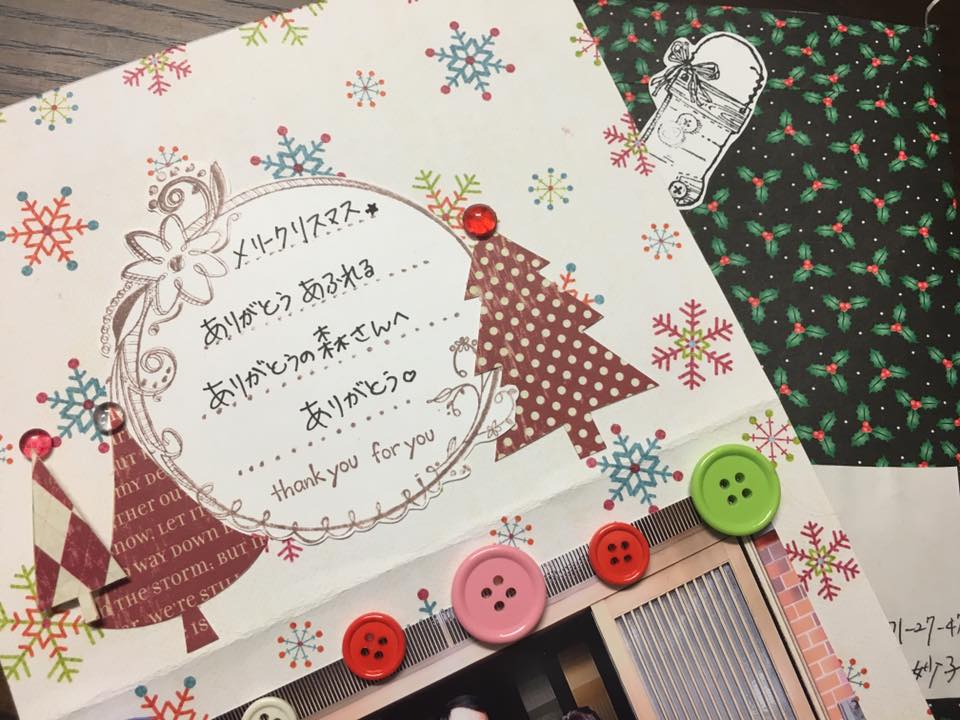 メリークリスマス★
ありがとう あふれる
ありがとうの森さんへ
ありがとう。
thank you for you
NOW, LET IT
WAY DOWN
THE STORM; BUT
WE'RE STILL
IS
1-27-47
妙子